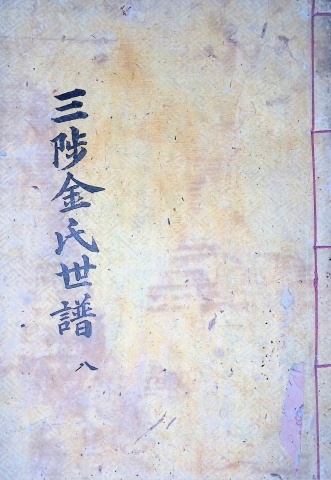 三陟金氏世譜
八